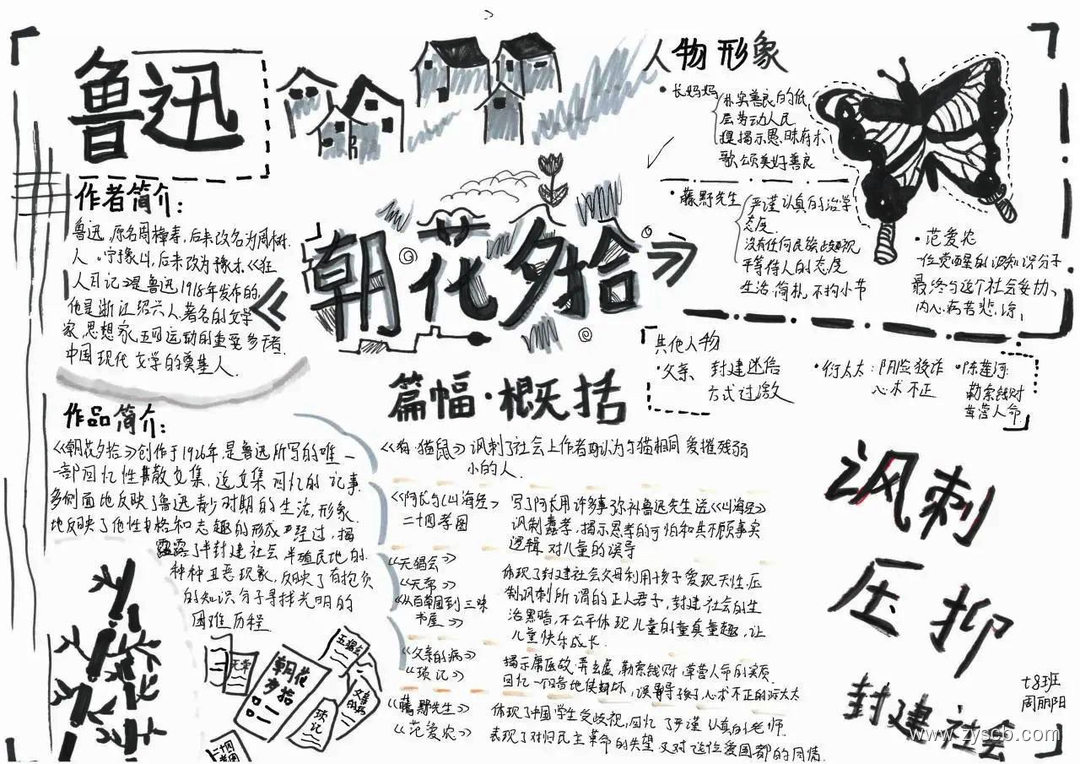 鲁迅
作者简介:
鲁迅,原名周樟寿,后来改名为周树
人。字豫山,后来改为豫才《狂
人日记》是鲁迅1918年发布的,
他是浙江绍兴人,著名的文学
家,思想家,五四运动的重要参与者
中国现代文学的奠基人.
作品简介:
《朝花夕拾》创作于1926年,是鲁迅所写的唯一
一部回忆性散文集,这文集回忆的记事
多侧面地反映了鲁迅青少时期的生活,形象
地反映了他性格和志趣的形成 经过,揭
露了半封建社会半殖民地的
种种丑恶现象,反映了有抱负
的知识分子寻找光明的
困难历程
《朝花夕拾》
人物形象
·长妈妈
朴实善良的低
层劳动人民
歌颂美好善良
·藤野先生
严谨认真的治学
态度.
没有任何民族歧视
平等待人的态度
生活简朴,不拘小节
·范爱农
一位觉醒的知识分子
最终与这个社会妥协,
内心痛苦悲凉
其他人物
·父亲:封建迷信
方式过激
·衍太太:阴险狡诈
心术不正
·陈莲河:
勒索钱财
草菅人命
篇幅·概括
《狗·猫·鼠》讽刺了社会上作者所认为与猫相同爱摧残弱
小的人
《阿长与山海经》
二十四孝图
写了阿长用许多事
逻辑,对儿童的误导
《五猖会》
《无常》
《从百草园到三味
书屋》
体现了封建社会父母利用孩子爱玩天性,压
制讽刺所谓的正人君子,封建社会的生
治黑暗,不公平体现儿童的童真童趣,让
儿童快乐成长
《父亲的病》
《琐记》
揭示庸医故弄玄虚,勒索钱财,草菅人命的实质
《藤野先生》
《范爱农》
体现了中国学生受歧视,回忆了严谨认真的老师
表现了对旧民主革命的失望,又对这位爱国者的同情
朝花
夕拾
五猖会
无常
琐记
父亲的病
讽刺
压抑
封建社会
七83班
周丽阳
www.zyscb.com